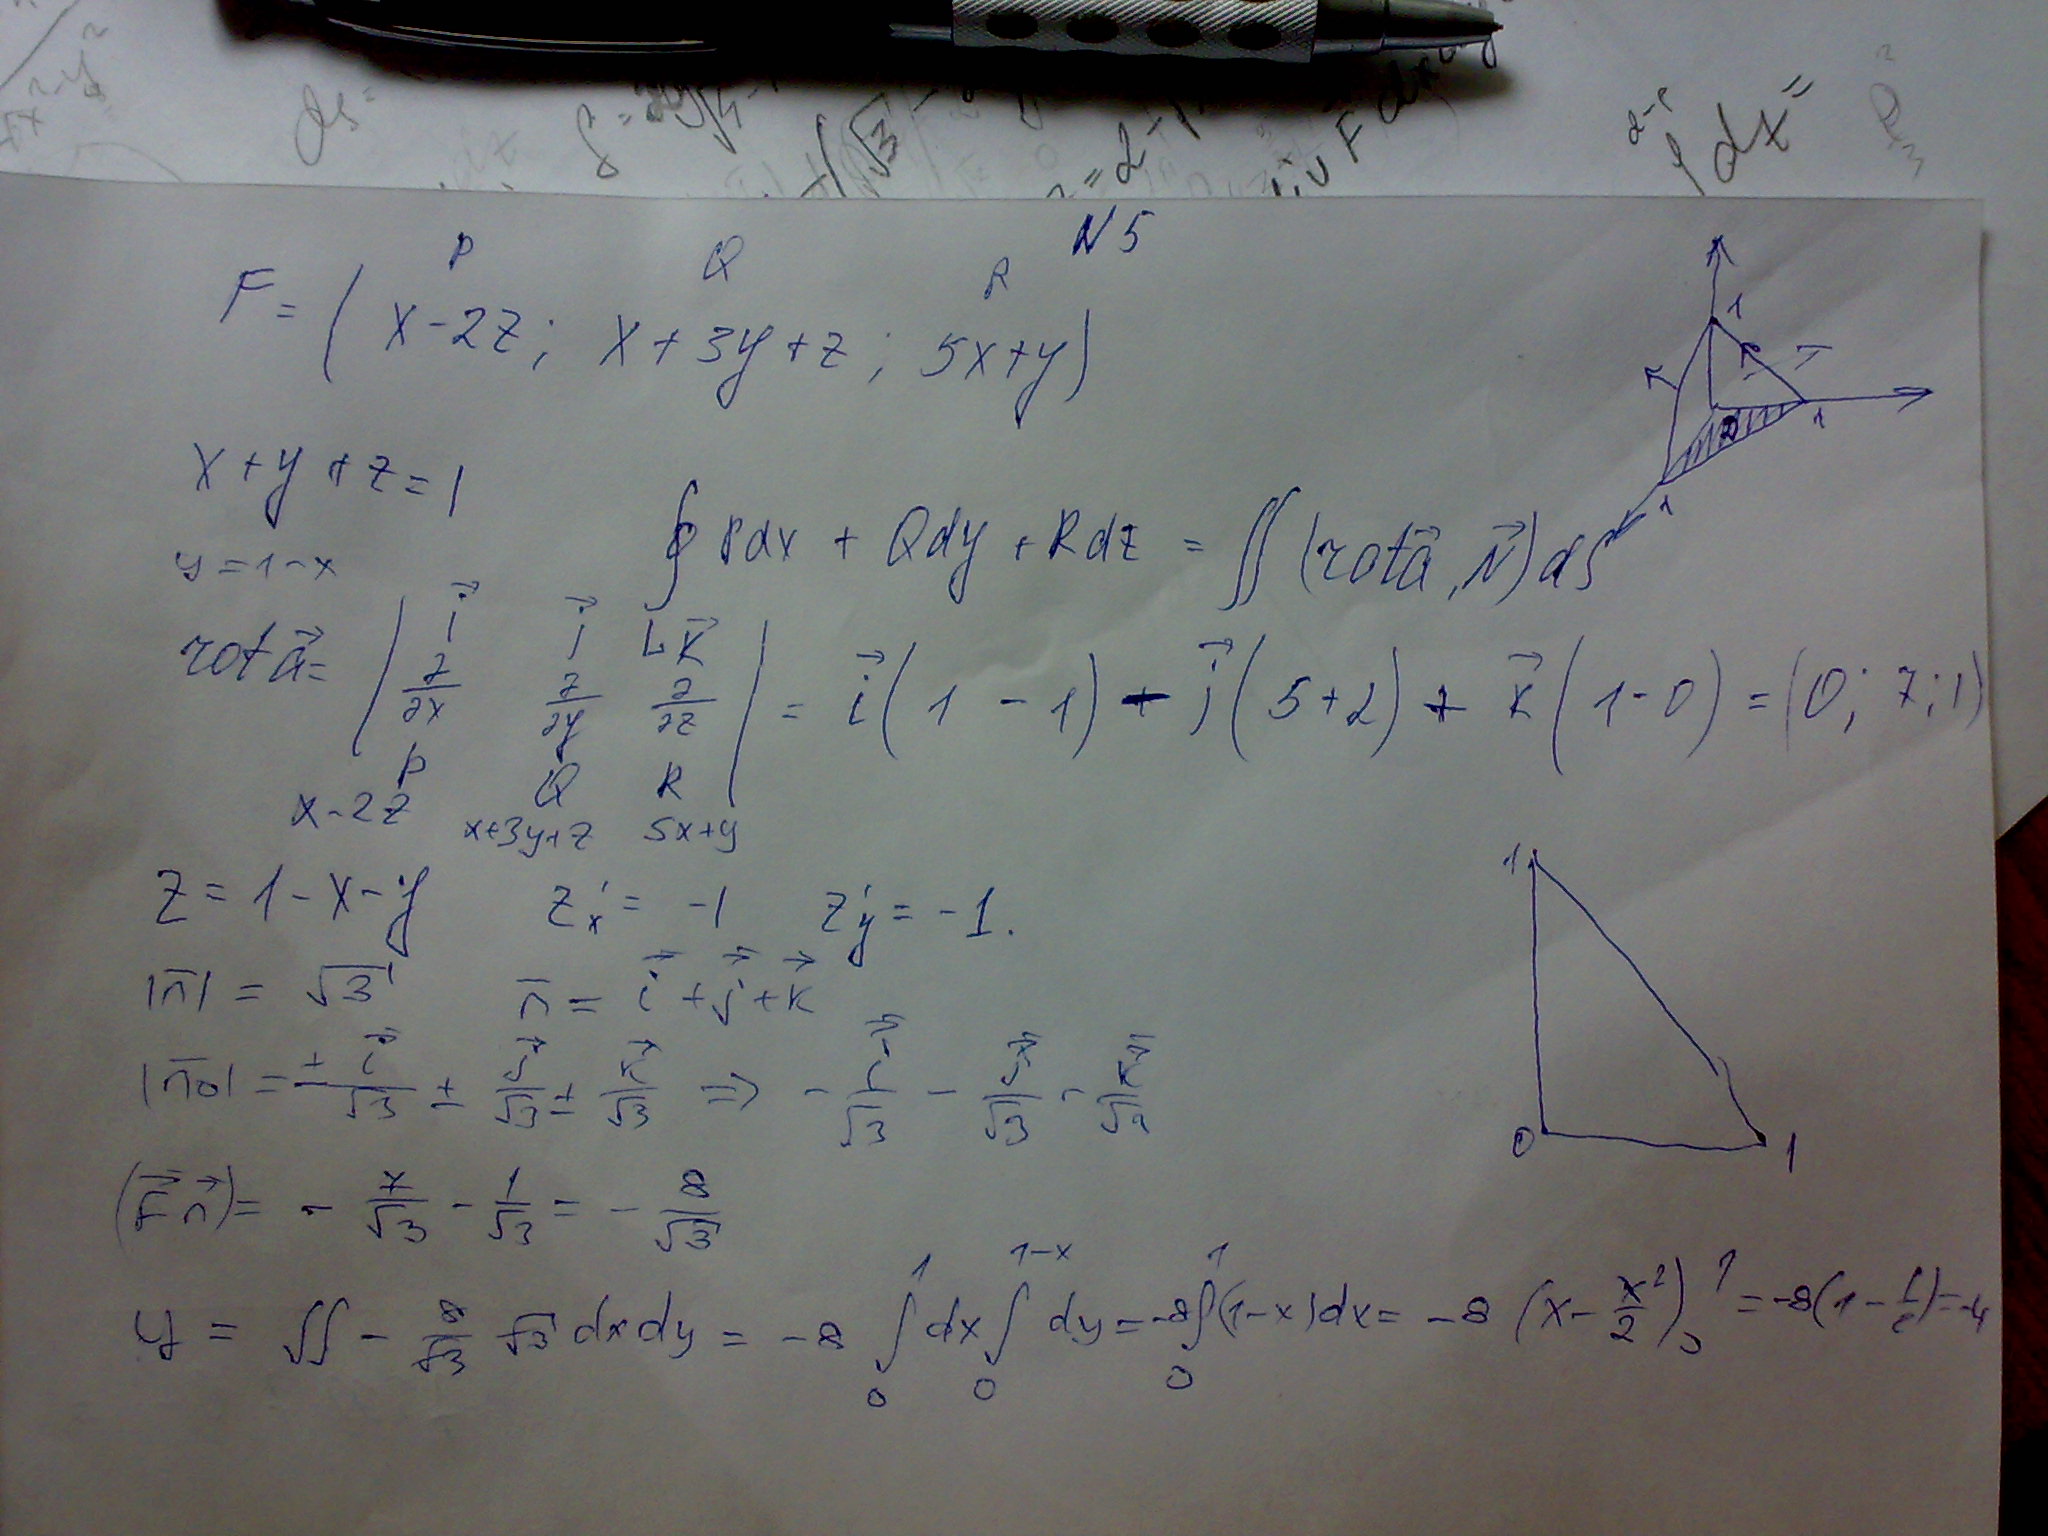 N5
P Q R
F = (x-2z; x+3y+z; 5x+y)
x+y+z=1
y=1-x
∮ Pdx + Qdy + Rdz = ∬ (rot a⃗, N⃗) dS
rot a⃗ = | i⃗ j⃗ k⃗
∂/∂x ∂/∂y ∂/∂z | = i⃗(1-1) - j⃗(5+2) + k⃗(1-0) = (0; 7; 1)
P Q R
x-2z x+3y+z 5x+y
z = 1-x-y z'x = -1 z'y = -1.
|n̄| = √3 n̄ = i⃗+j⃗+k⃗
|n̄0| = ± i⃗/√3 ± j⃗/√3 ± k⃗/√3 => - i⃗/√3 - j⃗/√3 - k⃗/√3
(F⃗ n⃗) = - 7/√3 - 1/√3 = - 8/√3
y = ∬ - 8/√3 √3 dxdy = -8 ∫₀¹ dx ∫₀¹⁻ˣ dy = -8 ∫₀¹ (1-x)dx = -8 (x - x²/2)₀¹ = -8(1 - 1/2) = -4
1
1
1
D
1
0
1
ds=
dx=